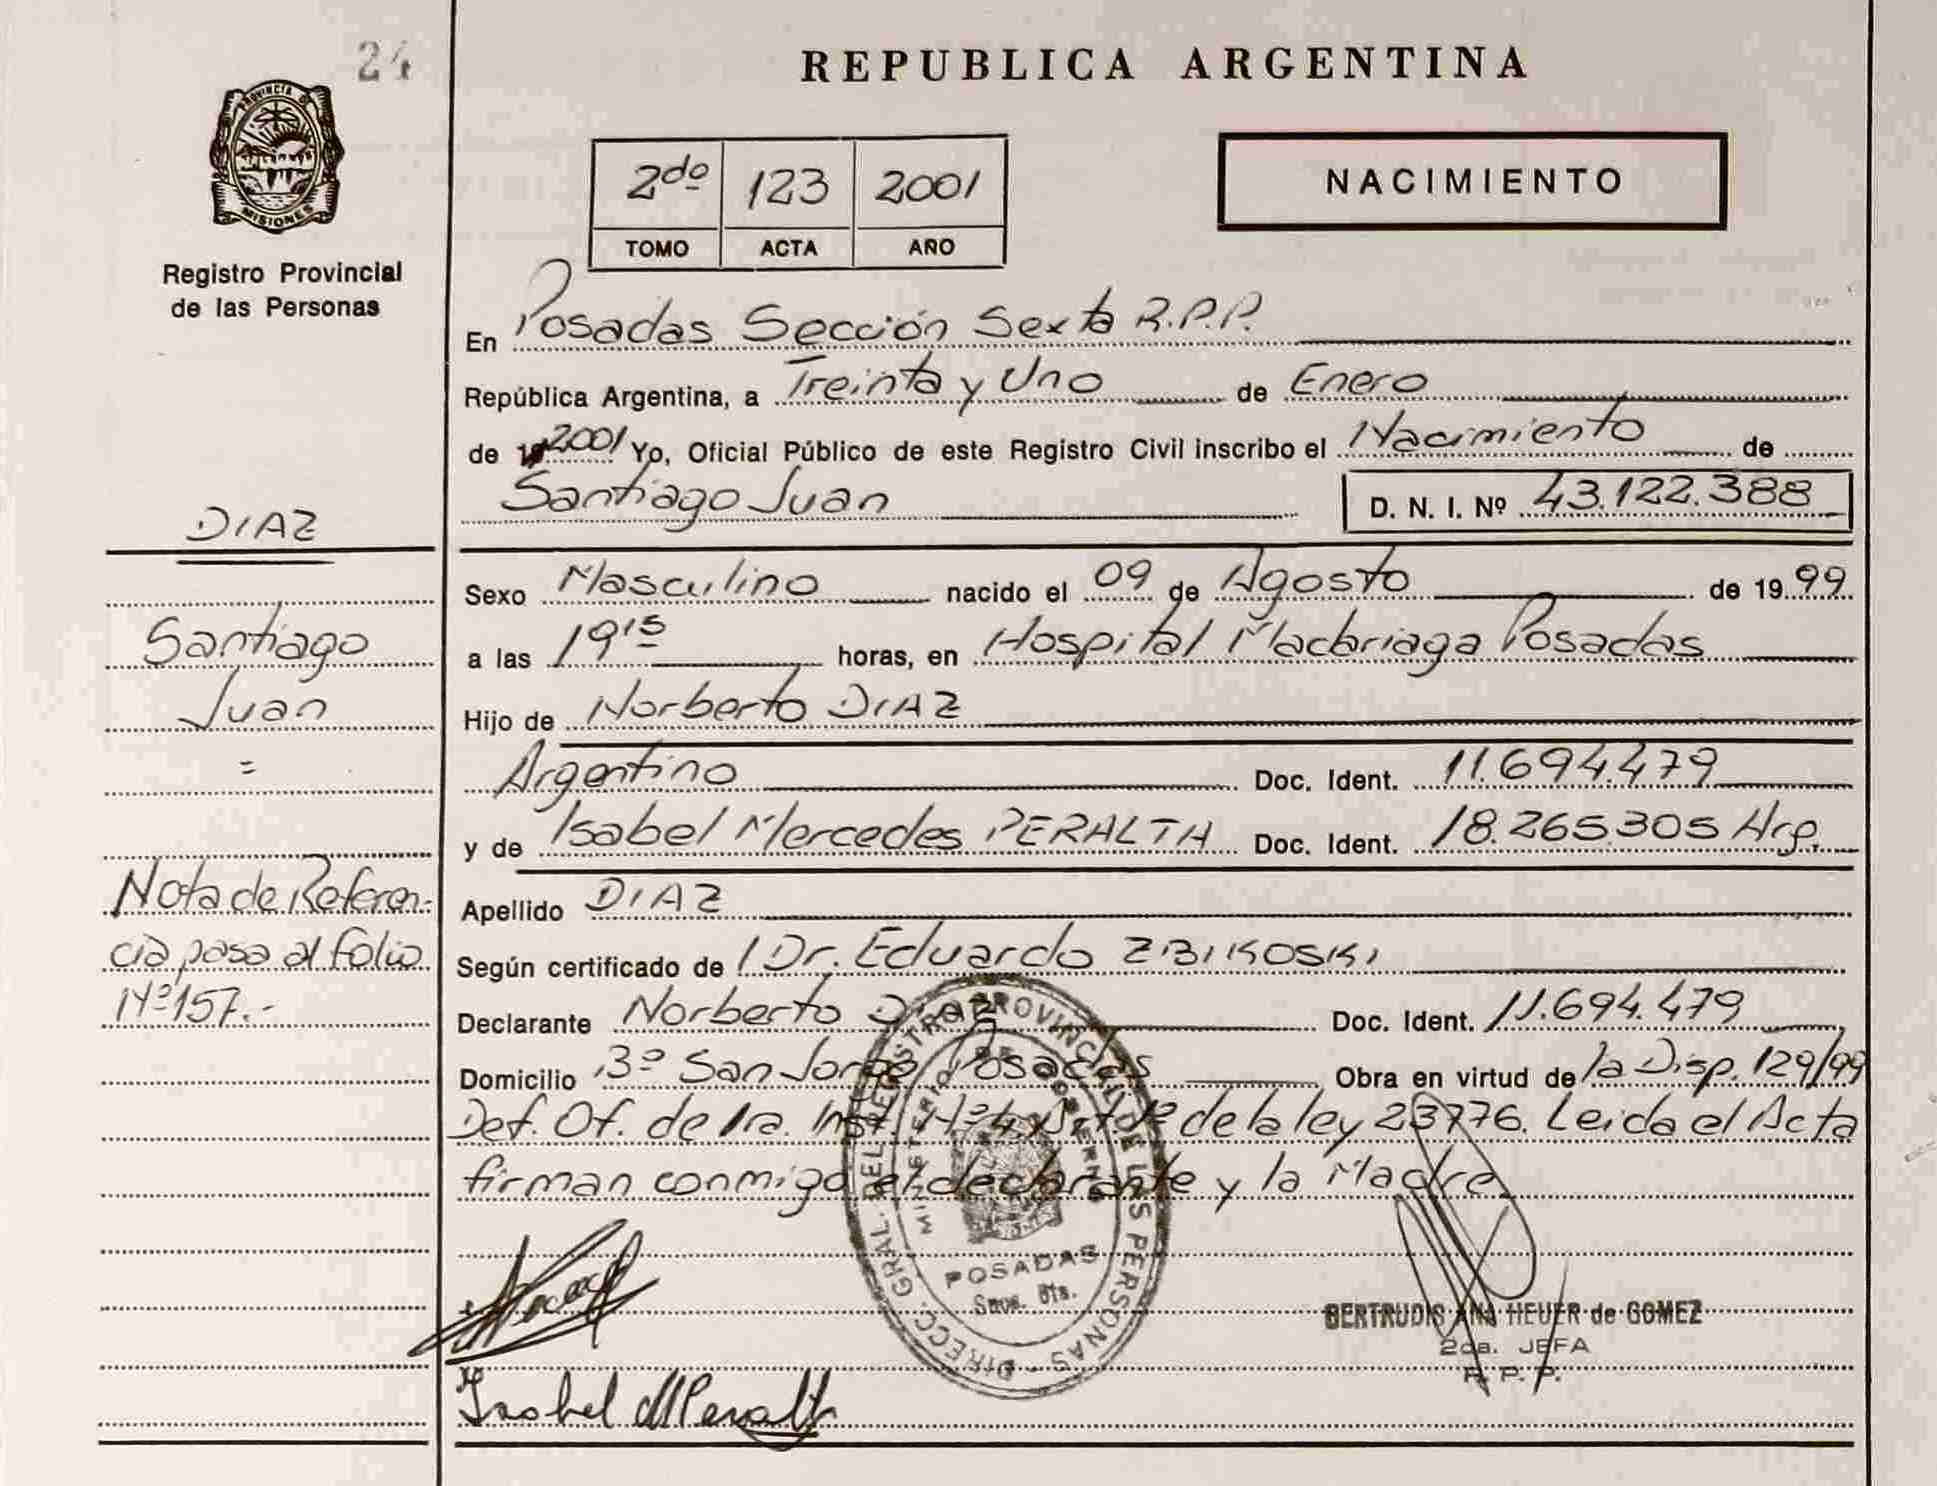 24
REPUBLICA ARGENTINA
PROVINCIA DE
MISIONES
Registro Provincial
de las Personas
2do 123 2001
TOMO ACTA AÑO
NACIMIENTO
En Posadas Sección Sexta R.P.P.
República Argentina, a Treinta y Uno de Enero
de 2001 Yo, Oficial Público de este Registro Civil inscribo el Nacimiento de
Santiago Juan D. N. I. Nº 43.122.388
DIAZ
Santiago
Juan
=
Sexo Masculino nacido el 09 de Agosto de 1999
a las 19 15 horas, en Hospital Madariaga Posadas
Hijo de Norberto DIAZ
Argentino Doc. Ident. 11.694.479
y de Isabel Mercedes PERALTA Doc. Ident. 18.265.305 Arg.
Nota de Referen-
cia pasa al folio
Nº 157.-
Apellido DIAZ
Según certificado de Dr. Eduardo ZBIKOSKI
Declarante Norberto Diaz Doc. Ident. 11.694.479
Domicilio Bº San Jorge Posadas Obra en virtud de la Disp. 129/99
Def. Of. de 1ra. Inst. Nº 4 Art 1º de la ley 23776. Leida el Acta
firman conmigo el declarante y la Madre
DIRECC. GRAL. DEL REGISTRO PROVINCIAL DE LAS PERSONAS
MINISTERIO DE GOBIERNO
POSADAS
GERTRUDIS ANA HEUER de GOMEZ
2da. JEFA
R. P. P.
Isabel M Peralta